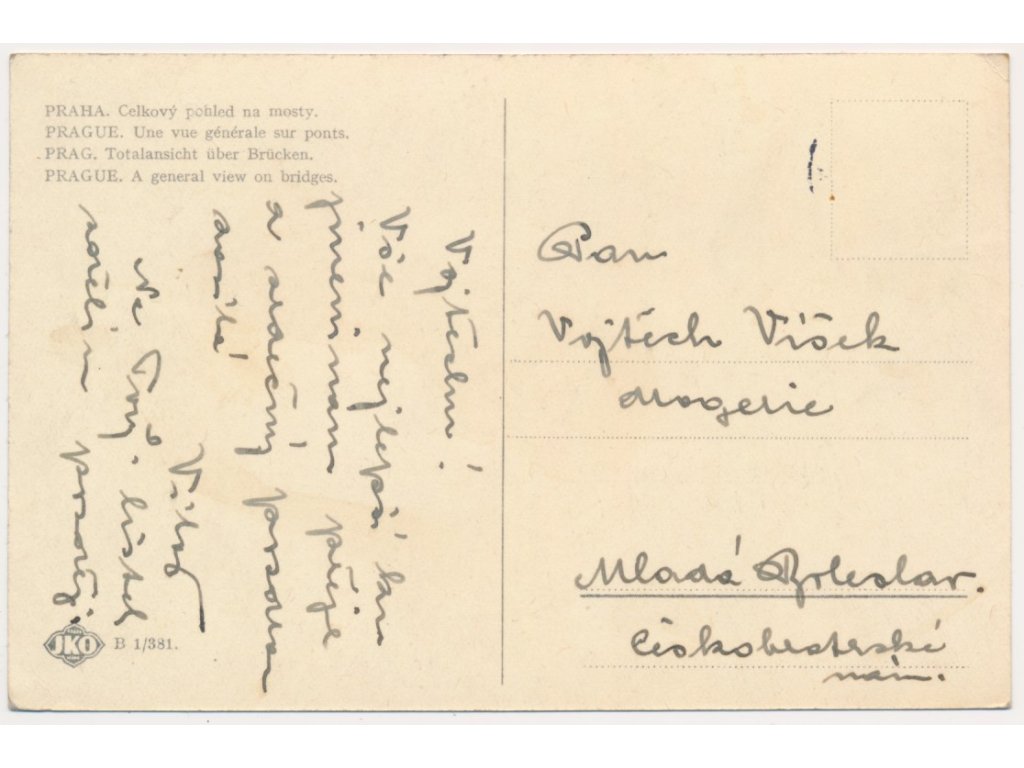 PRAHA. Celkový pohled na mosty.
PRAGUE. Une vue générale sur ponts.
PRAG. Totalansicht über Brücken.
PRAGUE. A general view on bridges.
Vojtěchu!
Vše nejlepší k
jmeninám přeje
a srdečný pozdrav
Na Tvůj lístek
později.
JKO
B 1/381.
Pan
Vojtěch Víšek
drogerie
Mladá Boleslav.
Českobratrské
nám.